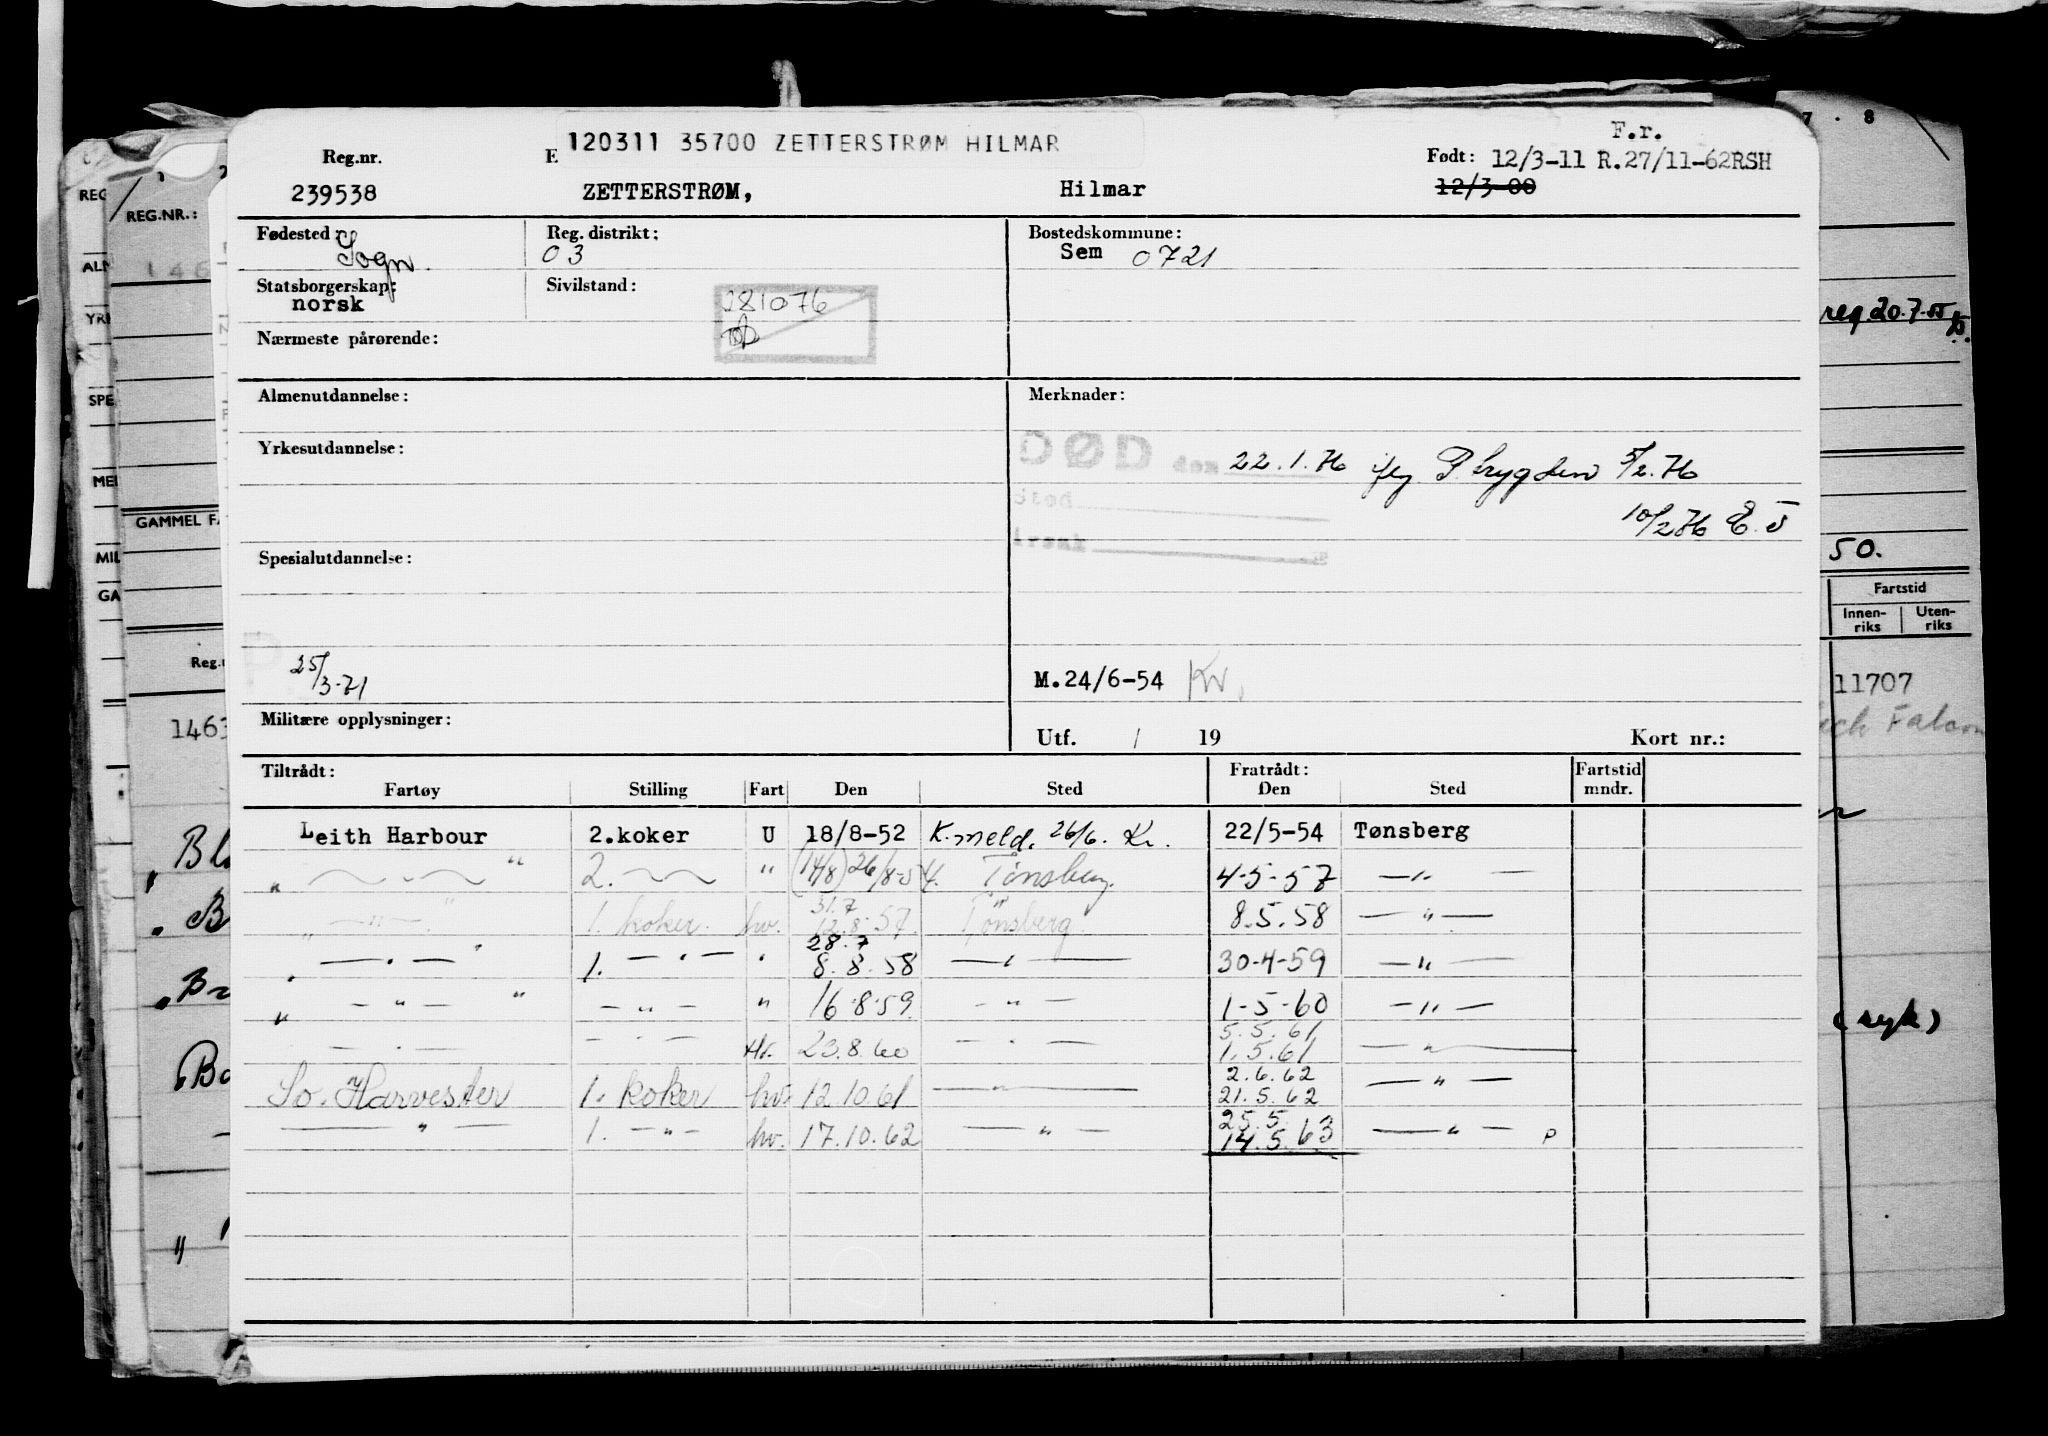 F.r.
120311 35700 ZETTERSTRØM HILMAR
Reg.nr. E Født: 12/3-11 R.27/11-62RSH
239538 ZETTERSTRØM, Hilmar 12/3-00
Fødested: Sogn Reg. distrikt: 03 Bostedskommune: Sem 0721
Statsborgerskap: norsk Sivilstand: 281076
Nærmeste pårørende:
Almenutdannelse: Merknader:
Yrkesutdannelse: DØD den 22.1.76 iflg. P.trygden 5/2.76
Sted
10/2 76 E.J
Årsak
Spesialutdannelse:
25/3-71 M.24/6-54 Kr.
Militære opplysninger: Utf. / 19 Kort nr.:
Tiltrådt: Fratrådt: Fartstid
Fartøy Stilling Fart Den Sted Den Sted mndr.
Leith Harbour 2.koker U 18/8-52 K.meld. 26/6. Kr. 22/5-54 Tønsberg
" — " 2. — " (14/8) 26/8-54. Tønsberg. 4-5-57 — " —
31.7
" — " — " 1. koker. hv. 12.8.57. Tønsberg. 8.5.58 — " —
28.7
" — " — " 1. — " — " 8.8.58 — " — 30-4-59 — " —
" — " — " — " — " 16.8.59. — " — 1-5-60 — " —
5.5.61
— " — — " — Hv. 23.8.60 — " — 1.5.61 — " —
2.6.62
So. Harvester 1. koker hv. 12.10.61 — " — 21.5.62 — " —
25.5.
— " — 1. — " — hv. 17.10.62 — " — 14.5.63 — " — P
REG.NR.:
GAMMEL FA
Reg.
1463
7 . 8
reg. 20.7.55
50.
Fartstid
Innen-riks Uten-riks
11707
(syk)